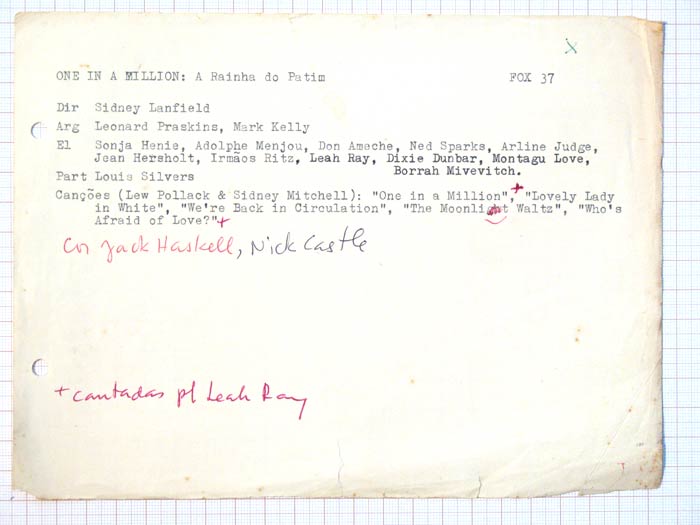 x
ONE IN A MILLION: A Rainha do Patim FOX 37
Dir Sidney Lanfield
Arg Leonard Praskins, Mark Kelly
El Sonja Henie, Adolphe Menjou, Don Ameche, Ned Sparks, Arline Judge,
Jean Hersholt, Irmãos Ritz, Leah Ray, Dixie Dunbar, Montagu Love,
Borrah Mivevitch.
Part Louis Silvers
Canções (Lew Pollack & Sidney Mitchell): "One in a Million",+ "Lovely Lady
in White", "We're Back in Circulation", "The Moonlight Waltz", "Who's
Afraid of Love?"+
Cor Jack Haskell, Nick Castle
+ cantadas pl Leah Ray